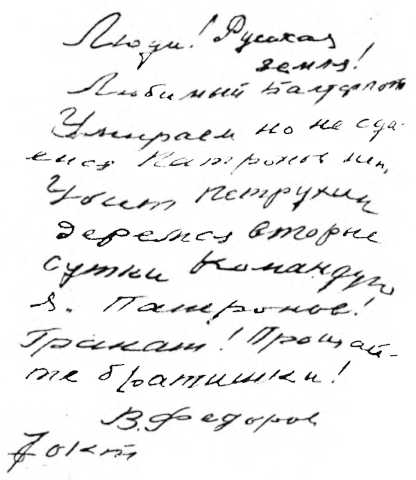 Люди! Русская
земля!
Любимый Балтфлот
Умираем но не сда-
емся Патронов нет,
Убит Петрухин
деремся вторые
сутки Командую
я. Патронов!
Гранат! Прощай-
те братишки!
В. Федоров
7 окт